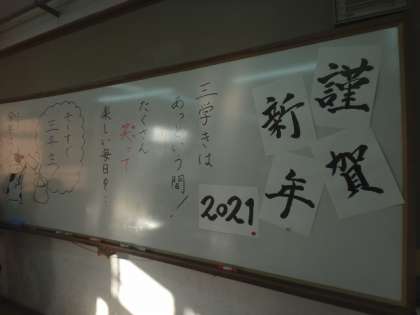 謹賀
新年
2021
三学きは
あっという間!
たくさん
笑って
楽しい毎日を…
もうすぐ
三年生